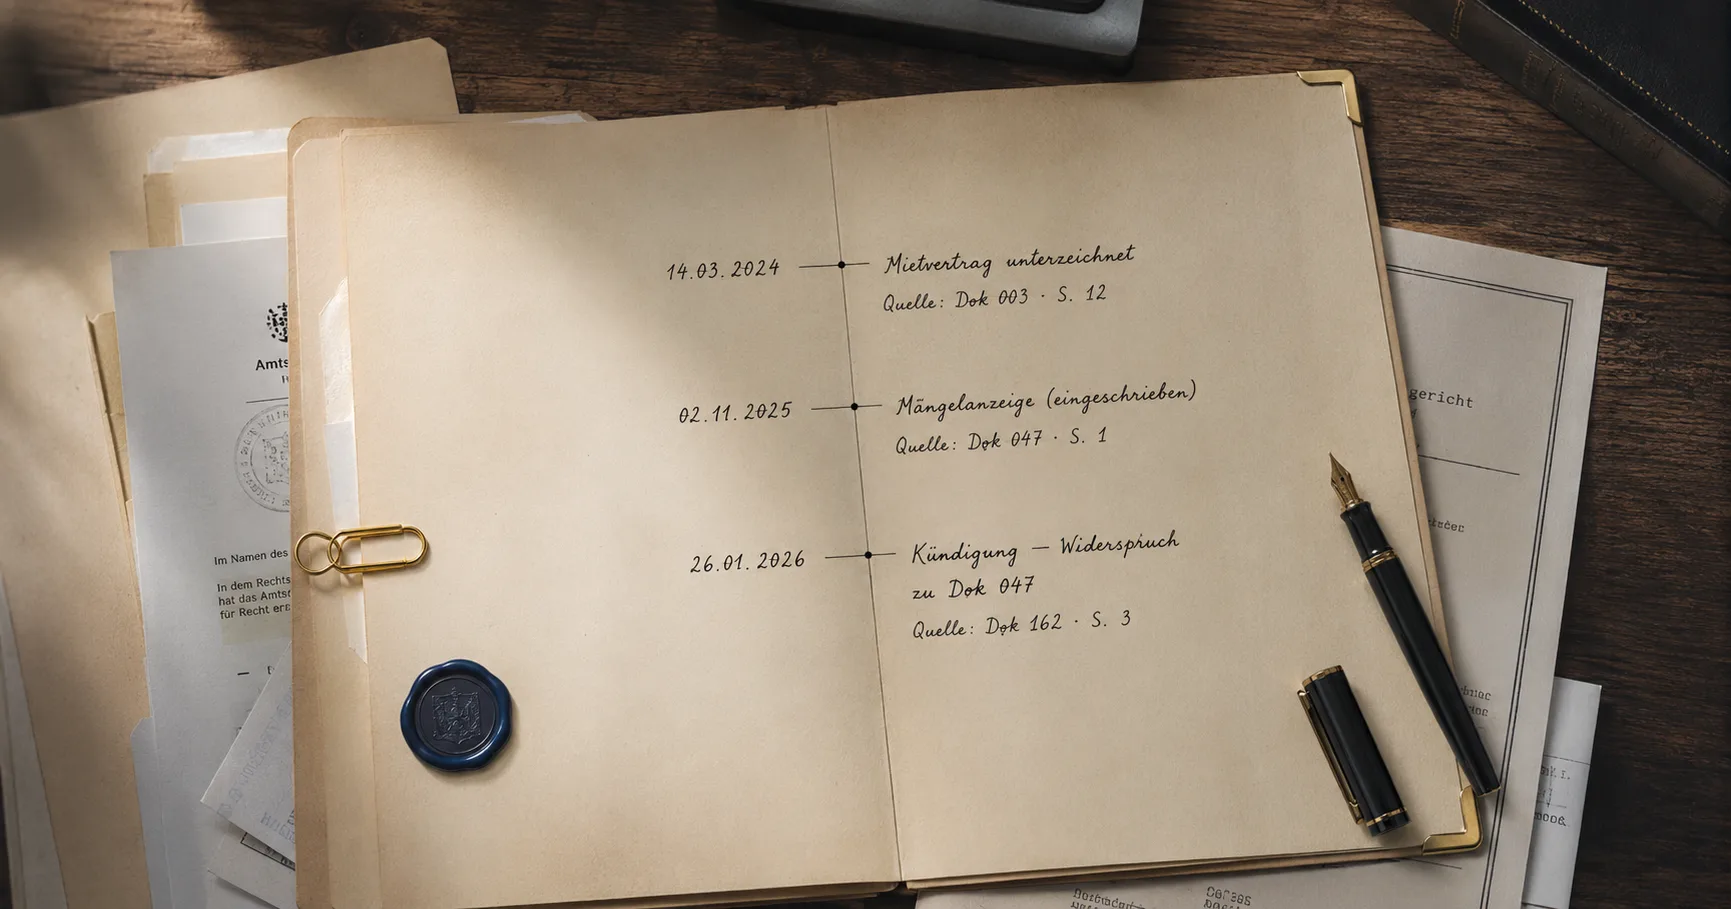 14.03.2024
Mietvertrag unterzeichnet
Quelle: Dok 003 · S. 12
02.11.2025
Mängelanzeige (eingeschrieben)
Quelle: Dok 047 · S. 1
26.01.2026
Kündigung — Widerspruch
zu Dok 047
Quelle: Dok 162 · S. 3
Amts
Im Namen des
In dem Rechts
hat das Amts
für Recht
gericht